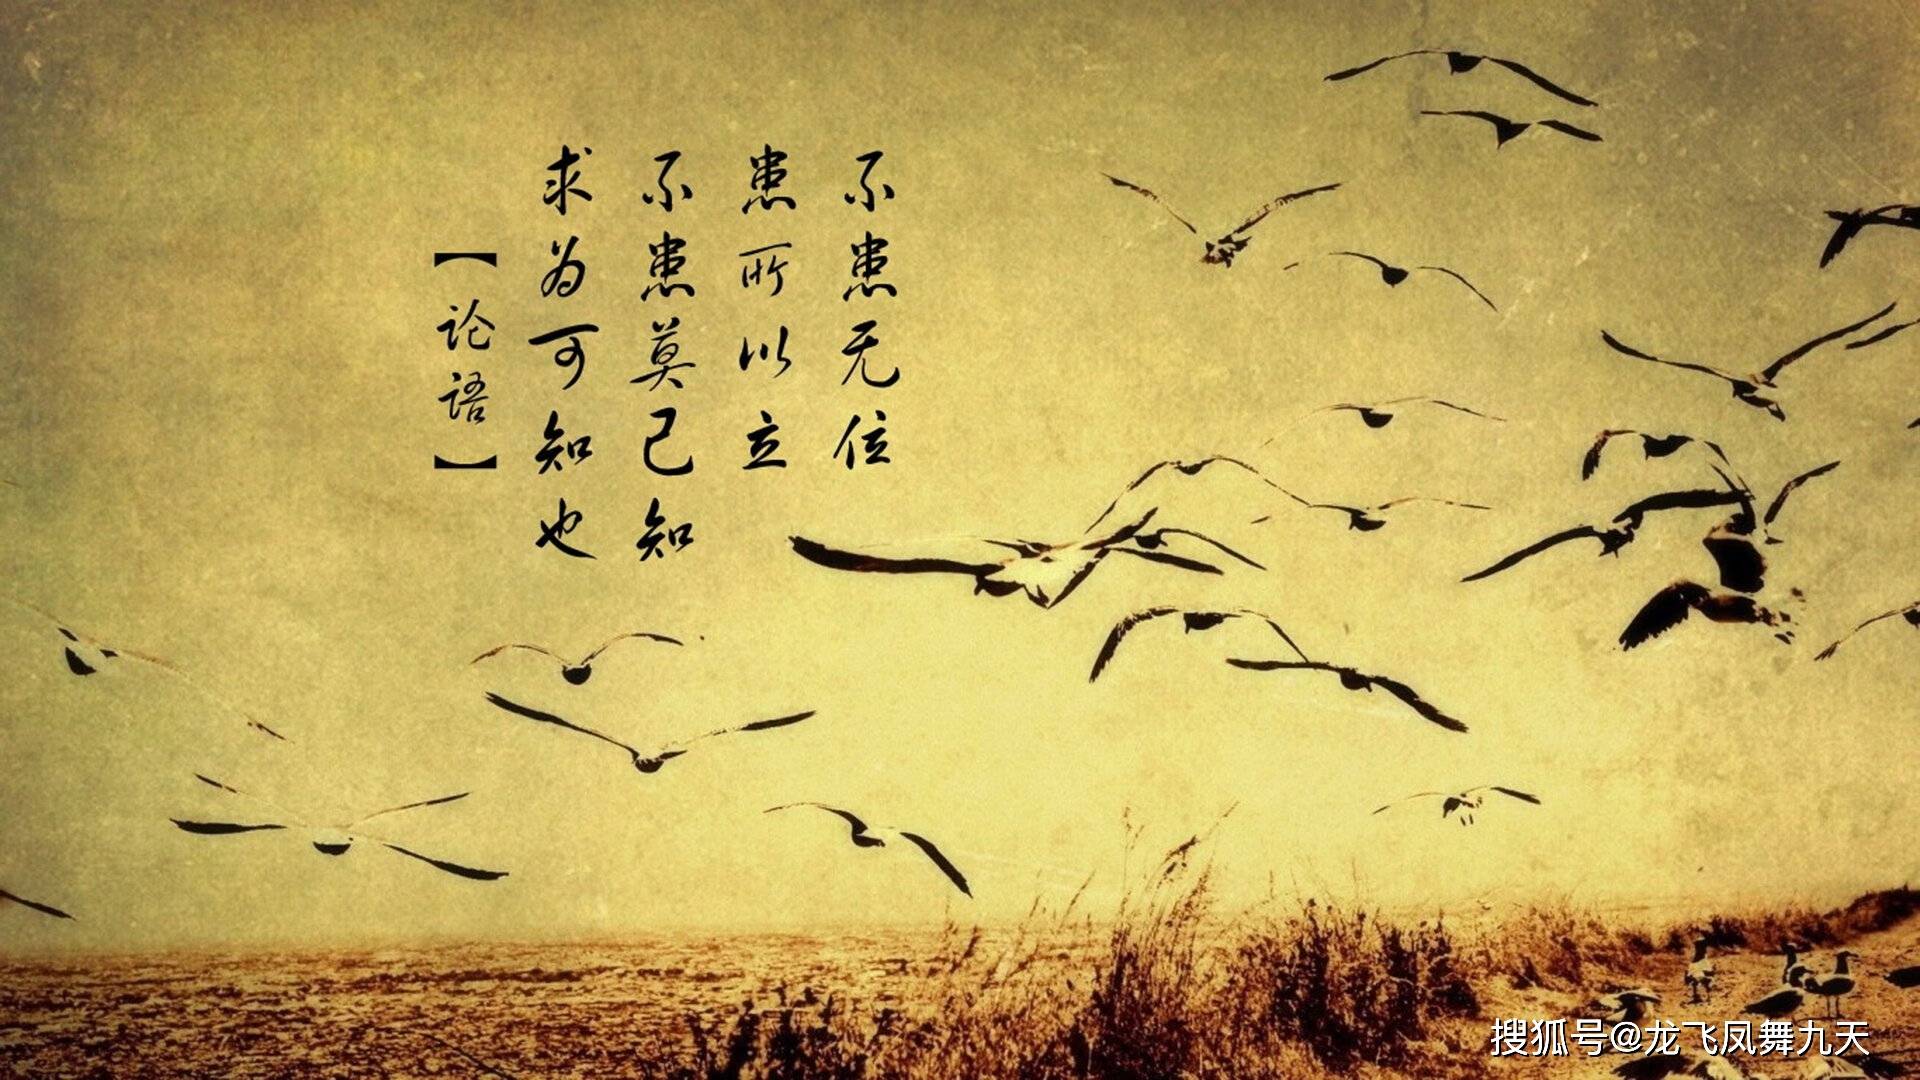 不患无位
患所以立
不患莫己知
求为可知也
【论语】
搜狐号@龙飞凤舞九天